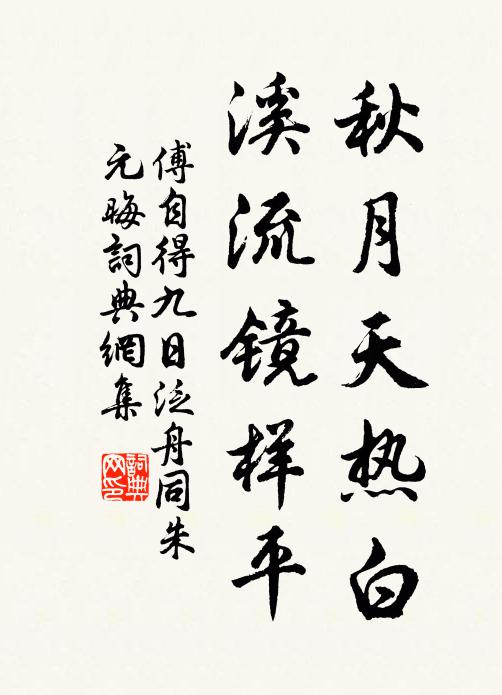 秋月天热白
溪流镜样平
傅自得九日泛舟同朱
元晦詞典網集
詞典网印